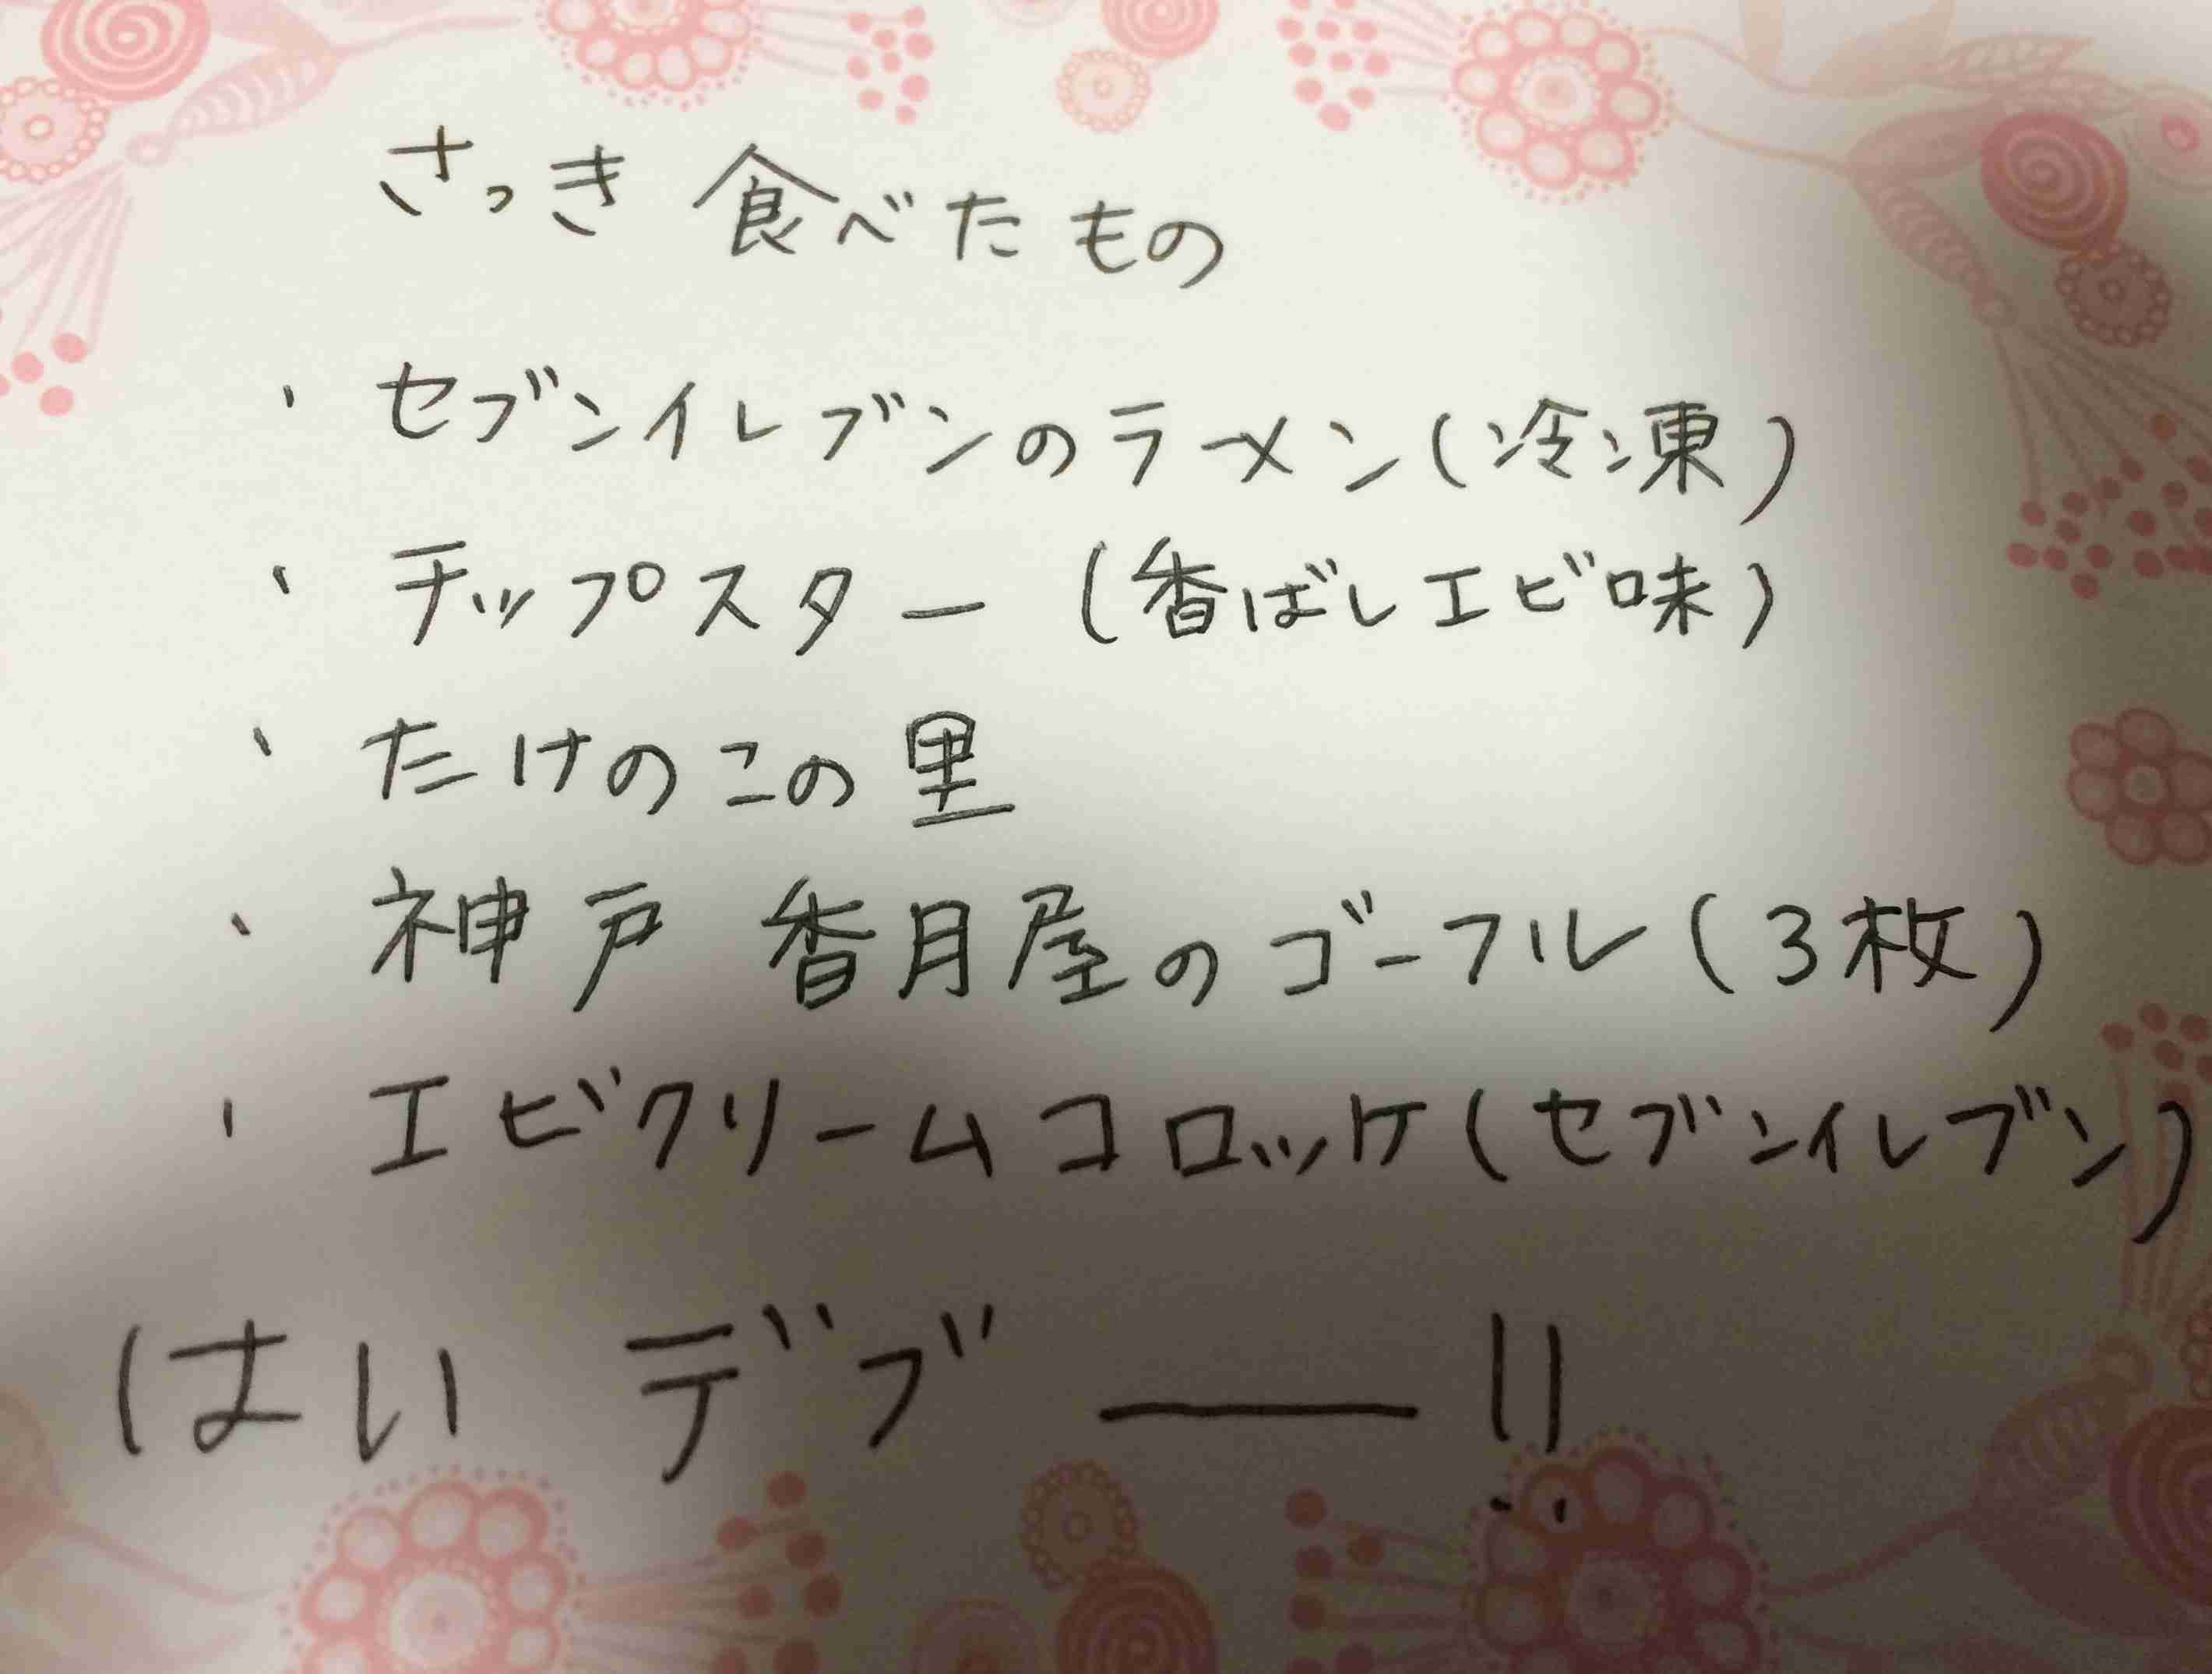 さっき 食べたもの
・ セブンイレブンのラーメン(冷凍)
・ チップスター (香ばしエビ味)
・ たけのこの里
・ 神戸 香月屋のゴーフル(3枚)
・ エビクリームコロッケ(セブンイレブン)
はい デブ ー!!